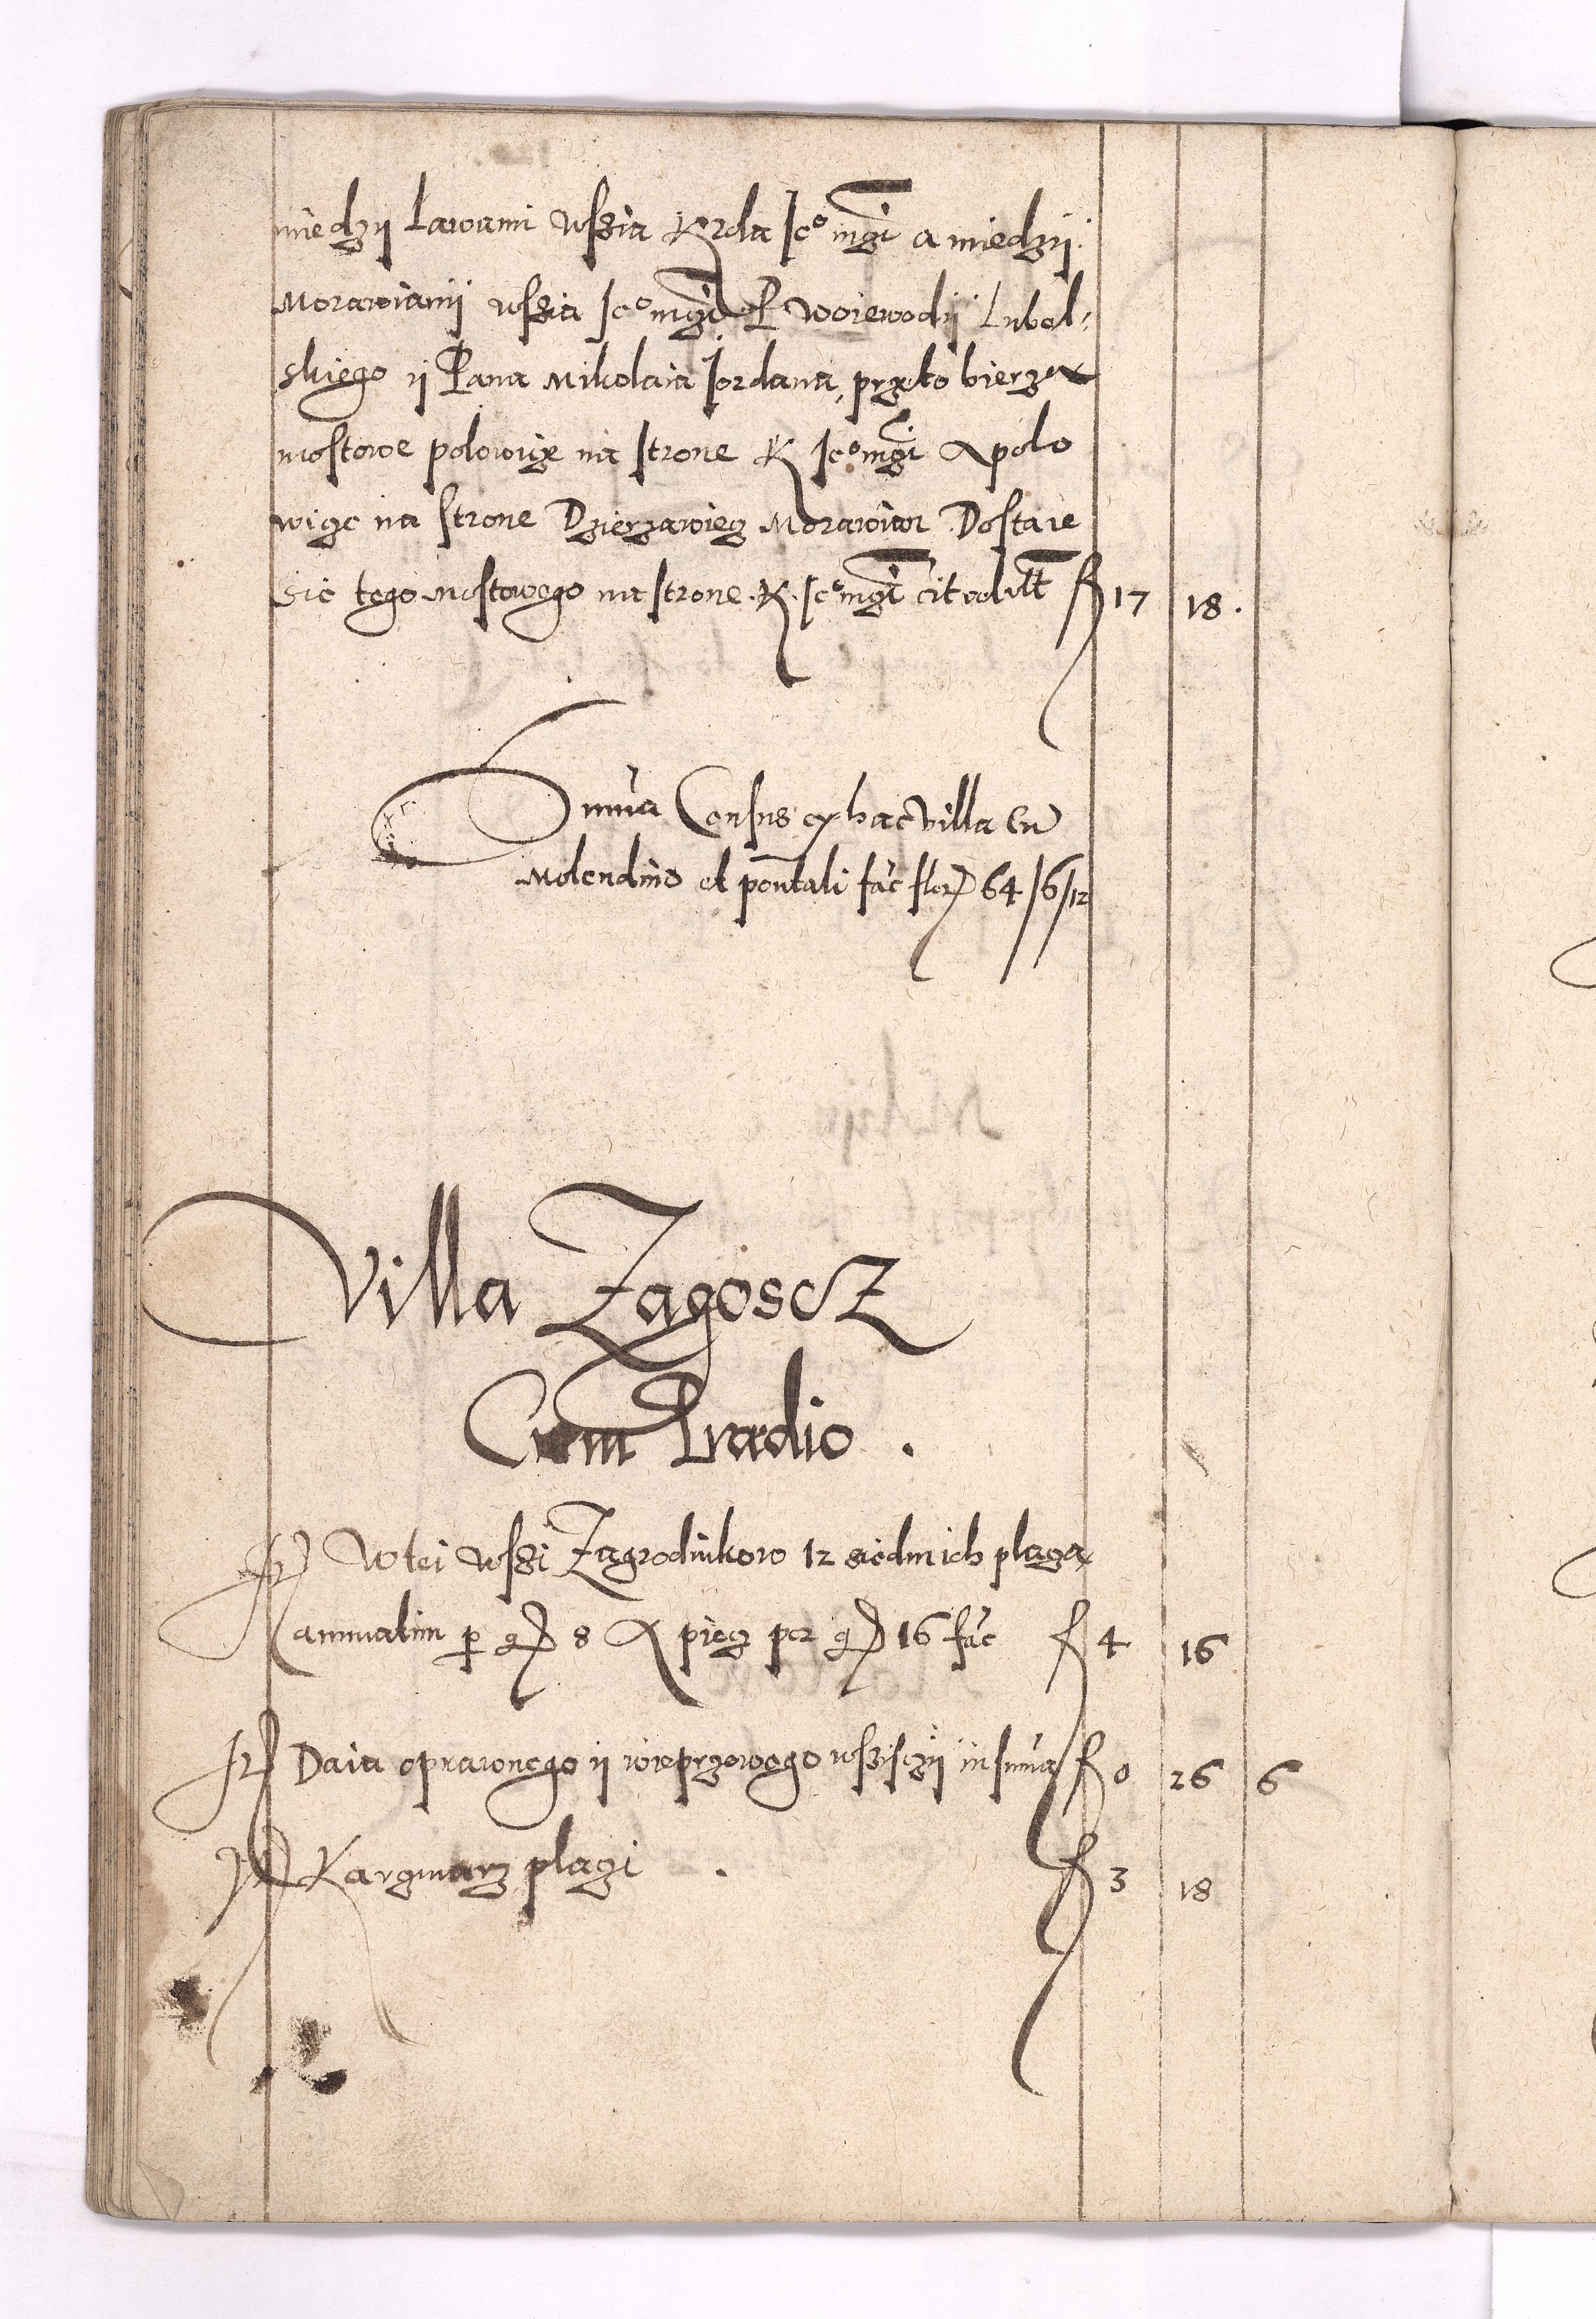 miedzÿ Lawami wssia Krola Jeº mgci a miedzÿ
Morawianÿ wssia Jeº mgci P woiewodÿ Lubel-
skiego ÿ Pana Mikolaia Jordana, przeto bierza
mostowe polowicze na strone K Jeº mgci A polo
wice na strone Dzierzawcz Morawian Dostaie
sie tego mostowego na strone K Jeº mgci f 17 18.
Suma Census ex hac villa Cum
Molendino et pontali fac flor 64/6/12
Villa Zagoscz
Cum Prædio.
It W tei wssi Zagrodnikow 12 siedmich plaga
annuatim per g 8 A piecz per g 16 fac f 4 16
It Daia oprawnego ÿ wieprzowego wssisczÿ in suma f 0 26 6
It Karczmarz plagi . f 3 18